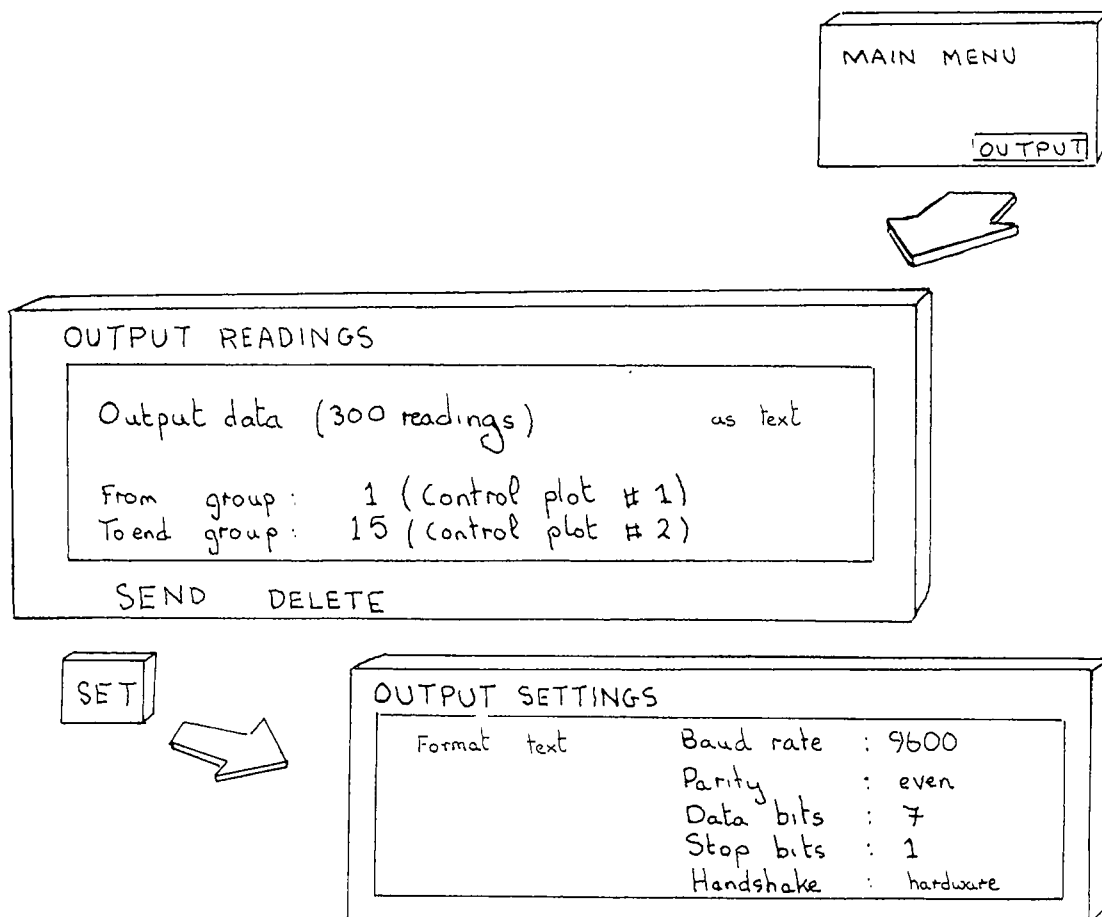 MAIN MENU
OUTPUT
OUTPUT READINGS
Output data (300 readings) as text
From group : 1 (Control plot # 1)
To end group : 15 (Control plot # 2)
SEND DELETE
SET
OUTPUT SETTINGS
Format text Baud rate : 9600
Parity : even
Data bits : 7
Stop bits : 1
Handshake : hardware